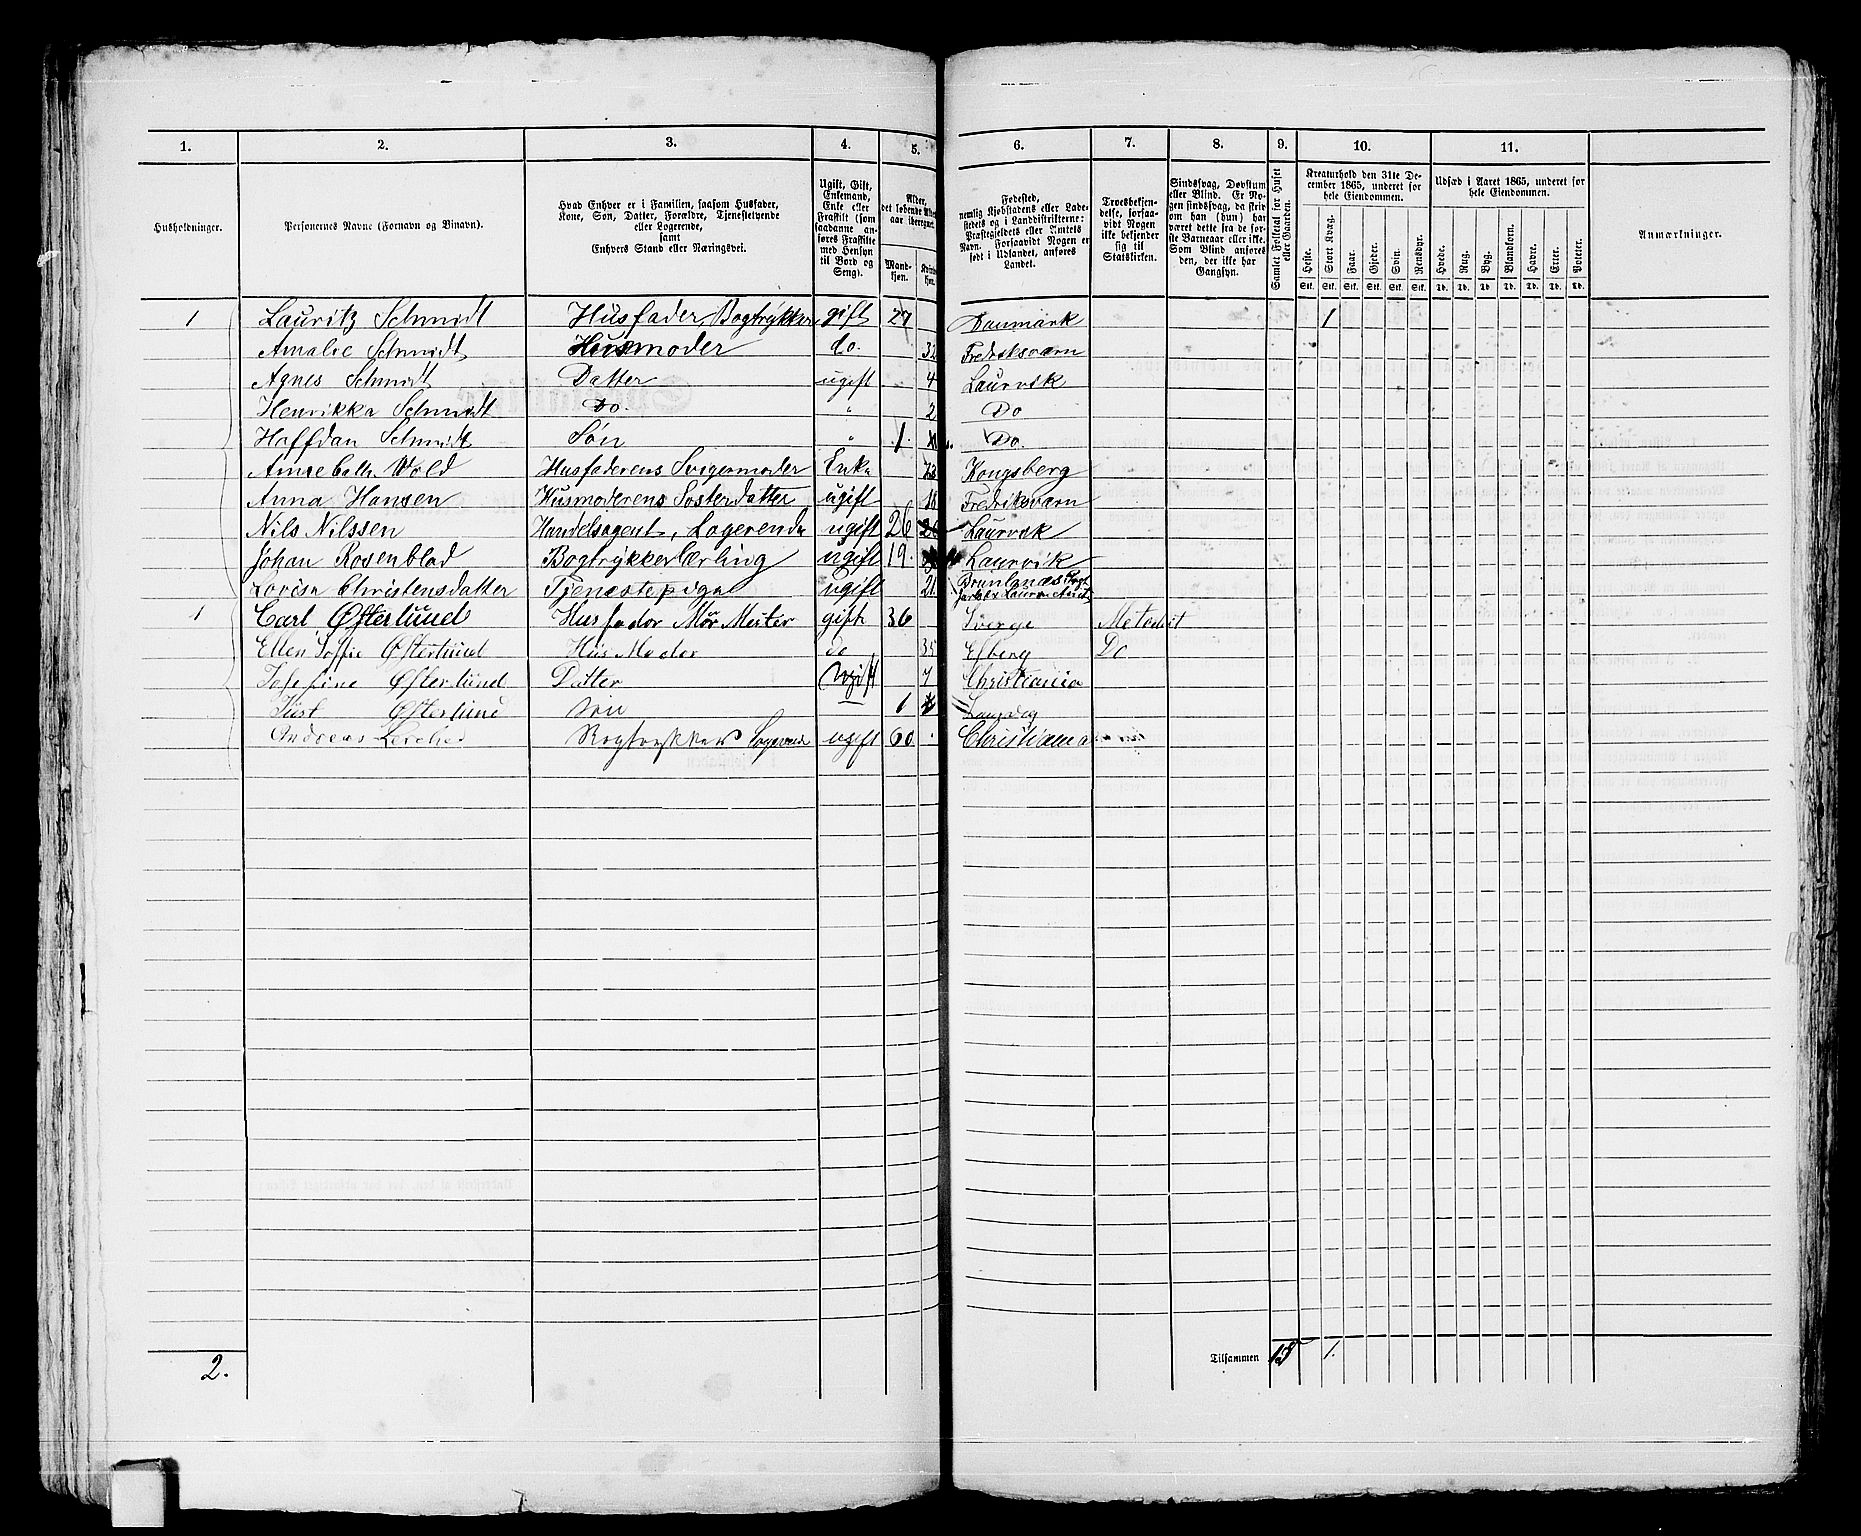 1. 2. 3. 4. 5. 6. 7. 8. 9. 10. 11.
Husholdninger.
Personernes Navne (Fornavn og Binavn).
Hvad Enhver er i Familien, saasom Husfader, Kone, Søn, Datter, Forældre, Tjenestetyende eller Logerende, samt Enhvers Stand eller Næringsvei.
Ugift, Gift, Enkemand, Enke eller Fraskilt (som saadanne anføres Fraskilte med Hensyn til Bord og Seng).
Alder, det løbende Alders aar iberegnet.
Mandkjøn. Kvindekjøn.
Fødested, nemlig Kjøbstadens eller Ladestedets og i Landdistrikterne: Præstegjeldets eller Amtets Navn. Forsaavidt Nogen er født i Udlandet, anføres Landet.
Troesbekjendelse, forsaavidt Nogen ikke bekjender sig til Statskirken.
Sindssvag, Døvstum eller Blind. Er Nogen sindssvag, da skriv om han (hun) har været dette fra de første Barneaar eller ikke. Som Blind anføres den, der ikke har Gangsyn.
Samlet Folketal for Huset eller Gaarden.
Kreaturhold den 31te December 1865, underet for hele Eiendommen.
Heste. Stort Kvæg. Faar. Gjeder. Svin. Rensdyr.
Udsæd i Aaret 1865, underet for hele Eiendommen.
Hvede. Rug. Byg. Blandkorn. Havre. Erter. Poteter.
Anmærkninger.
Stk. Stk. Stk. Stk. Stk. Stk. Td. Td. Td. Td. Td. Td. Td.
1 Lauritz Schmidt Husfader, Bogtrykker gift 27 Danmark 1
Amalie Schmidt Husmoder do. 32 Fredriksværn
Agnes Schmidt Datter ugift 4 Laurvik
Henrikka Schmidt Do. " 2 Do
Halfdan Schmidt Søn " 1. Do.
Anne Cath. Wold Husfaderens Svigermoder Enke Kongsberg
Anna Hansen Husmoderens Søsterdatter ugift 16 Fredriksværn
Nils Nilssen Handelsagent, Logerende ugift 26 Laurvik
Johan Rosenblad Bogtrykkerlærling ugift 19. Laurvik
Lovisa Christensdatter Tjenestepige ugift 21. Brunlanæs
1 Carl Østerlund Husfader Mür Mester gift 36 Sverje Metodist
Ellen Soffie Østerlund Hus Moder do 35 Do
Josefine Østerlund Datter Ugift 7 Christiania
Just Østerlund Søn 1
Andreas Bogtrykker Logerende ugift 60 Christiania
2. Tilsammen 15 1.